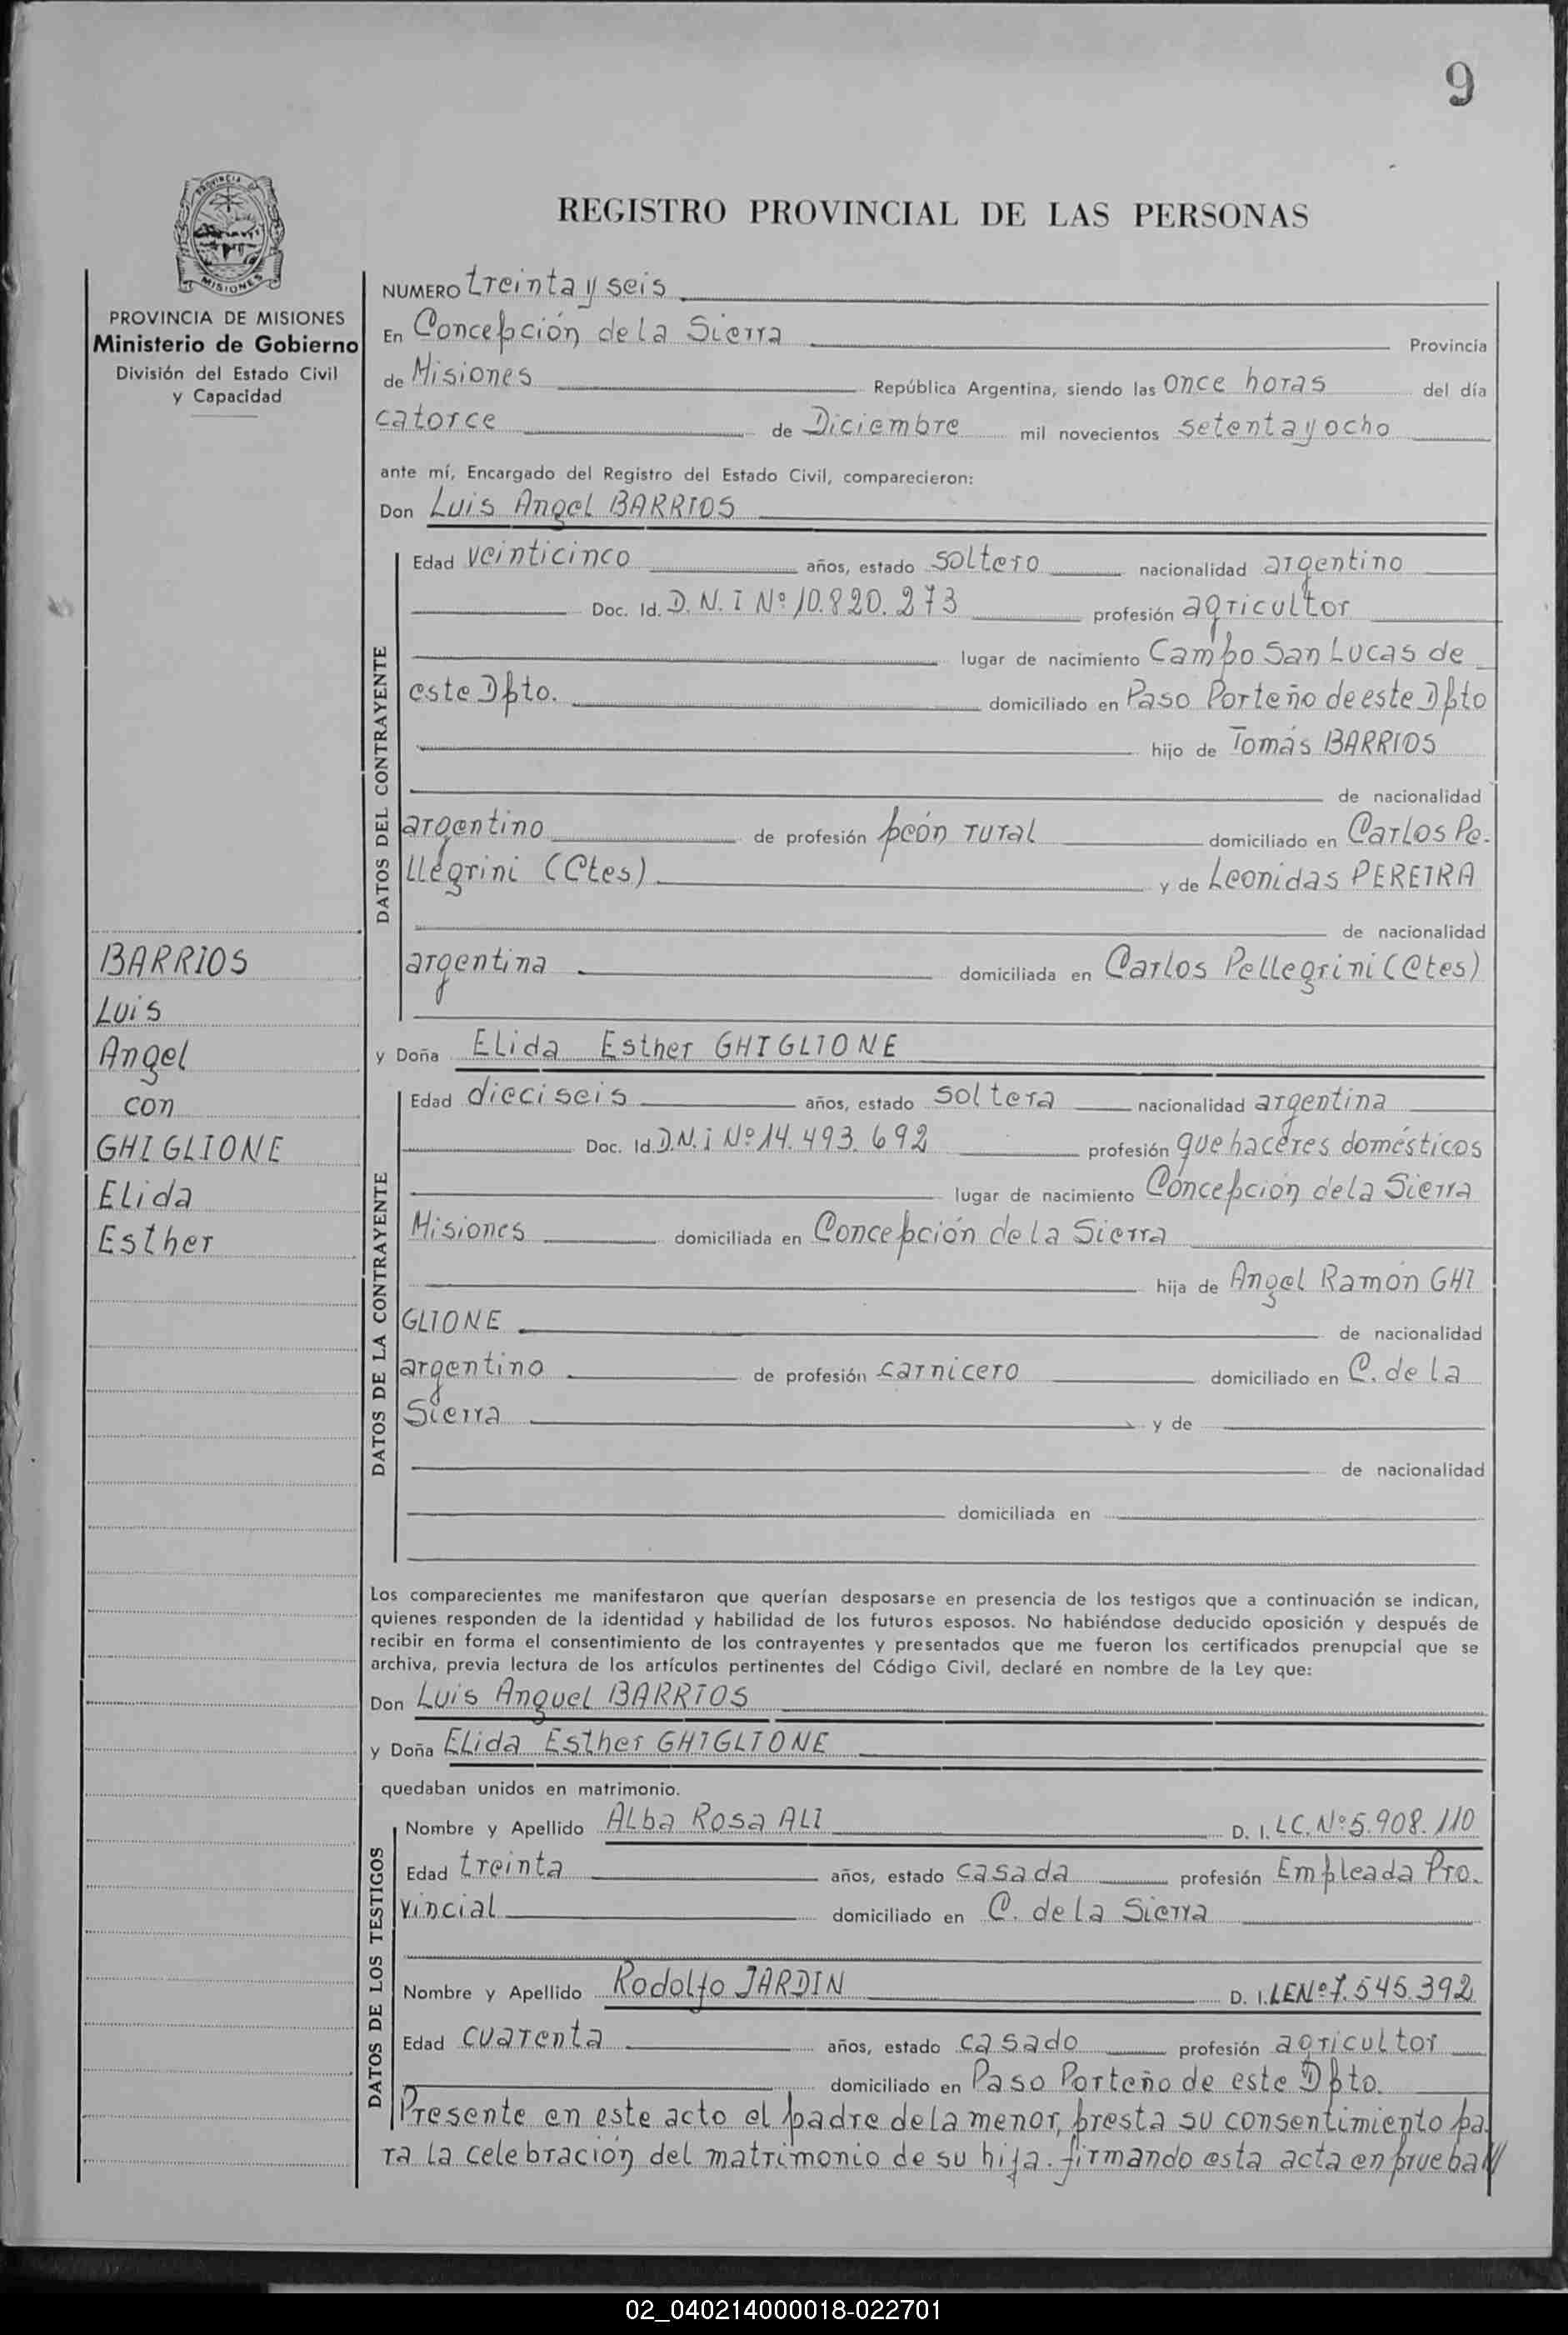 9
PROVINCIA DE
MISIONES
REGISTRO PROVINCIAL DE LAS PERSONAS
PROVINCIA DE MISIONES
Ministerio de Gobierno
División del Estado Civil
y Capacidad
NUMERO treinta y seis
En Concepción de la Sierra Provincia
de Misiones República Argentina, siendo las once horas del día
catorce de Diciembre mil novecientos setenta y ocho
ante mí, Encargado del Registro del Estado Civil, comparecieron:
Don Luis Angel BARRIOS
DATOS DEL CONTRAYENTE
Edad veinticinco años, estado soltero nacionalidad argentino
Doc. Id. D.N.I Nº 10.820.273 profesión agricultor
lugar de nacimiento Campo San Lucas de
este Dpto. domiciliado en Paso Porteño de este Dpto
hijo de Tomás BARRIOS
de nacionalidad
argentino de profesión peón rural domiciliado en Carlos Pe-
llegrini (Ctes) y de Leonidas PEREIRA
de nacionalidad
argentina domiciliada en Carlos Pellegrini (Ctes)
BARRIOS
Luis
Angel
con
GHIGLIONE
Elida
Esther
y Doña Elida Esther GHIGLIONE
DATOS DE LA CONTRAYENTE
Edad dieciseis años, estado soltera nacionalidad argentina
Doc. Id. D.N.i Nº 14.493.692 profesión que haceres domésticos
lugar de nacimiento Concepción de la Sierra
Misiones domiciliada en Concepción de la Sierra
hija de Angel Ramón GHI
GLIONE de nacionalidad
argentino de profesión carnicero domiciliado en C. de la
Sierra y de
de nacionalidad
domiciliada en
Los comparecientes me manifestaron que querían desposarse en presencia de los testigos que a continuación se indican,
quienes responden de la identidad y habilidad de los futuros esposos. No habiéndose deducido oposición y después de
recibir en forma el consentimiento de los contrayentes y presentados que me fueron los certificados prenupcial que se
archiva, previa lectura de los artículos pertinentes del Código Civil, declaré en nombre de la Ley que:
Don Luis Anguel BARRIOS
y Doña Elida Esther GHIGLIONE
quedaban unidos en matrimonio.
DATOS DE LOS TESTIGOS
Nombre y Apellido Alba Rosa ALI D. I. LC. Nº 5.908.110
Edad treinta años, estado casada profesión Empleada Pro.
vincial domiciliado en C. de la Sierra
Nombre y Apellido Rodolfo JARDIN D. I. LE Nº 7.545.392
Edad cuarenta años, estado casado profesión agricultor
domiciliado en Paso Porteño de este Dpto.
Presente en este acto el padre de la menor, presta su consentimiento pa
ra la celebración del matrimonio de su hija. firmando esta acta en prueba//
02_040214000018-022701